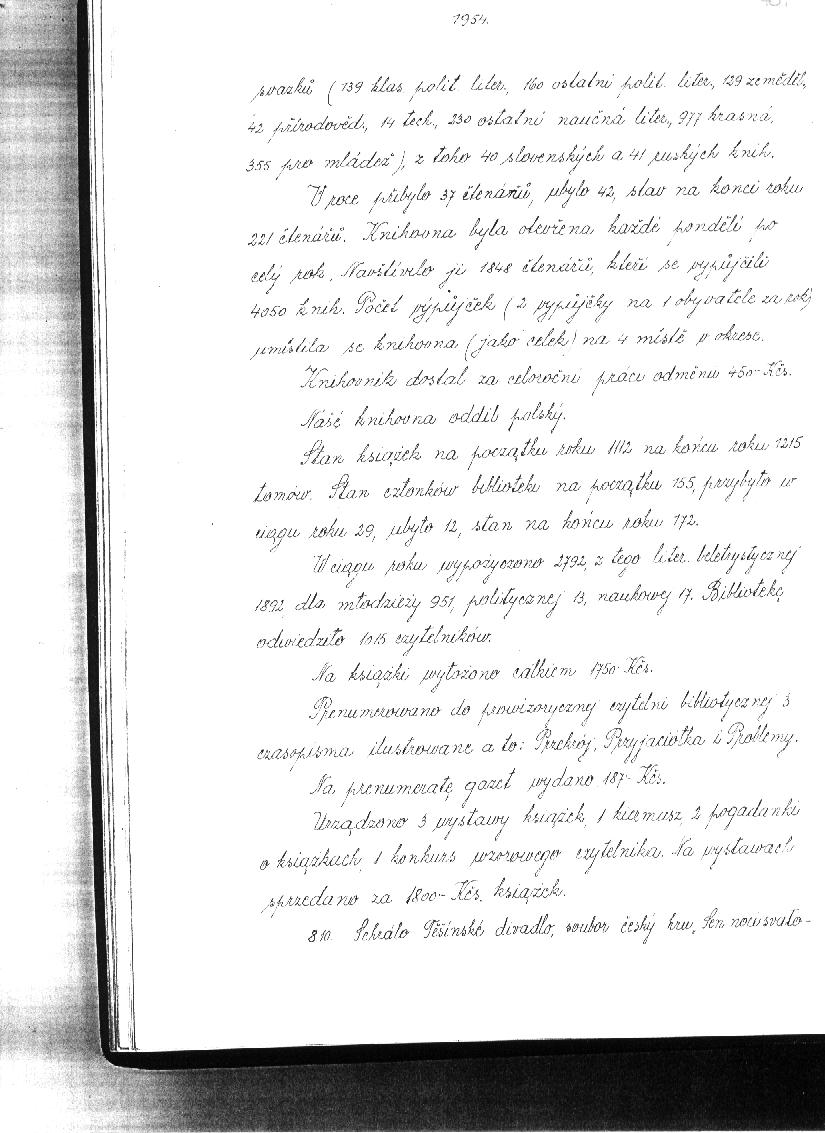 1954.
svazků (139 klas. polit. liter., 160 ostatní polit. liter., 129 zeměděl.,
42 přírodověd., 14 tech., 230 ostatní naučná liter., 977 krasná,
355 pro mládež), z toho 40 slovenských a 41 ruských knih.
V roce přibylo 37 čtenářů, ubylo 42, stav na konci roku
221 čtenářů. Knihovna byla otevřena každé pondělí po
celý rok. Navštívilo ji 1848 čtenářů, kteří se vypůjčili
4050 knih. Počet výpůjček (2 vypůjčky na 1 obyvatele za rok)
umístila se knihovna (jako celek) na 4 místě v okrese.
Knihovník dostal za celoroční práci odměnu 450- Kčs.
Naše knihovna oddíl polský.
Stan książek na początku roku 1112 na końcu roku 1215
tomów. Stan członków biblioteki na początku 155, przybyło w
ciągu roku 29, ubyło 12, stan na końcu roku 172.
W ciągu roku wypożyczono 2792, z tego liter. beletrystycznej
1892, dla młodzieży 951, politycznej 13, naukowej 17. Bibliotekę
odwiedziło 1015 czytelników.
Na książki wyłożono całkiem 1750- Kčs.
Prenumerowano do prowizorycznej czytelni bibliotycznej 3
czasopisma ilustrowane a to: Przekrój, Przyjaciółka i Problemy.
Na prenumeratę gazet wydano 187- Kčs.
Urządzono 3 wystawy książek, 1 kiermasz, 2 pogadanki
o książkach, 1 konkurs wzorowego czytelnika. Na wystawach
sprzedano za 1800- Kčs. książek.
8/10. Sehrálo Těšínské divadlo, soubor český hru „Sen noci svato-